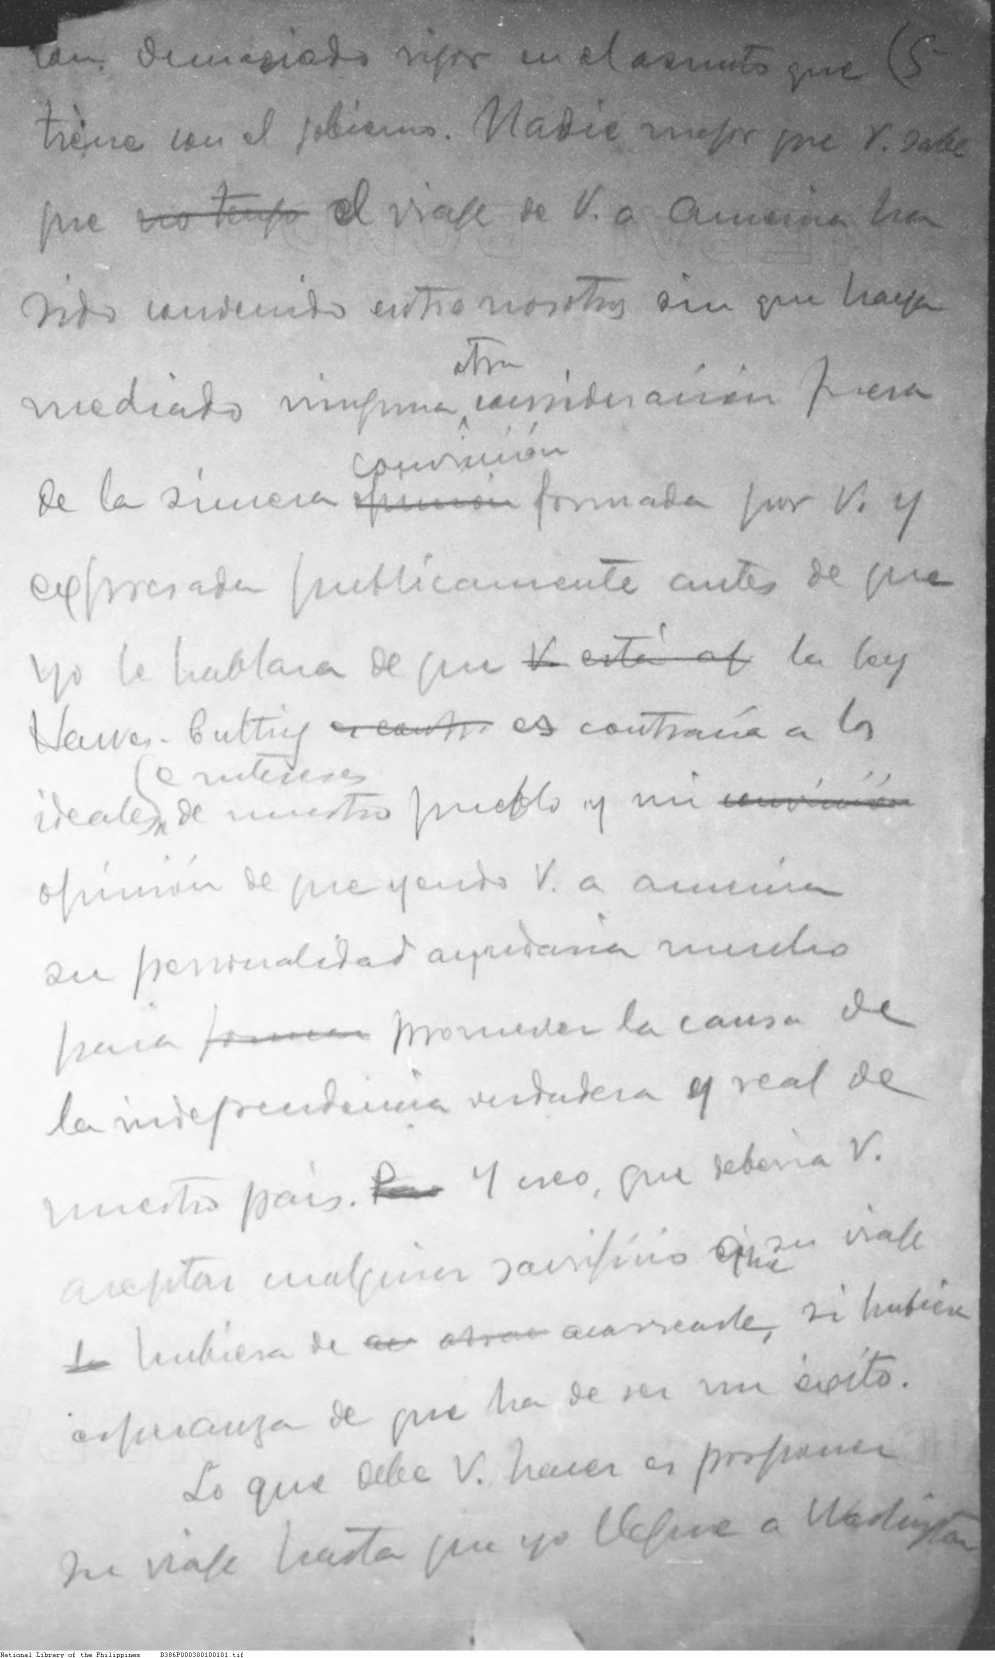 con demasiado rigor en el asunto que (5
tiene con el gobierno. Nadie mejor que V. sabe
que no tengo el viaje de V. a America ha
sido convenido entre nosotros sin que haya
otra
mediado ninguna consideración fuera
convicción
de la sincera opinión formada por V. y
expresada publicamente antes de que
yo le hablara de que V. está of la ley
Hawes-Cutting es contr. es contraria a los
e intereses
ideales de nuestro pueblo y mi convicción
opinión de que yendo V. a america
su personalidad ayudaria mucho
para promover la causa de
la independencia verdadera y real de
nuestro país. Pero Y creo, que deberia V.
aceptar cualquier sacrificio que su viaje
hubiera de acarrearle, si hubiera
esperanza de que ha de ser un éxito.
Lo que debe V. hacer es posponer
su viaje hasta que yo llegue a Washington
National Library of the Philippines B386P000380100101.tif